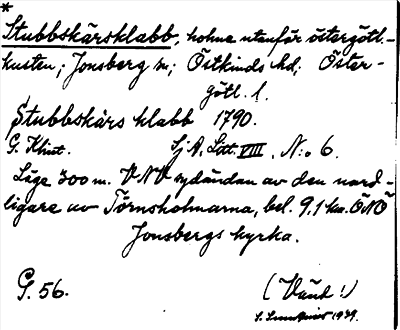 *
Stubbskärsklabb, holme utanför östergötl.-
kusten; Jonsberg sn; Östkinds hd; Öster-
götl. l.
Stubbskärs klabb 1790.
G. Klint. Sj A, Litt. VIII, N:o 6.
Läge 300 m. VNV sydändan av den nord-
ligare av Törnsholmarna, bel. 9,1 km. ÖNÖ
Jonsbergs kyrka.
G. 56. (Vänd!)
S. 1939.